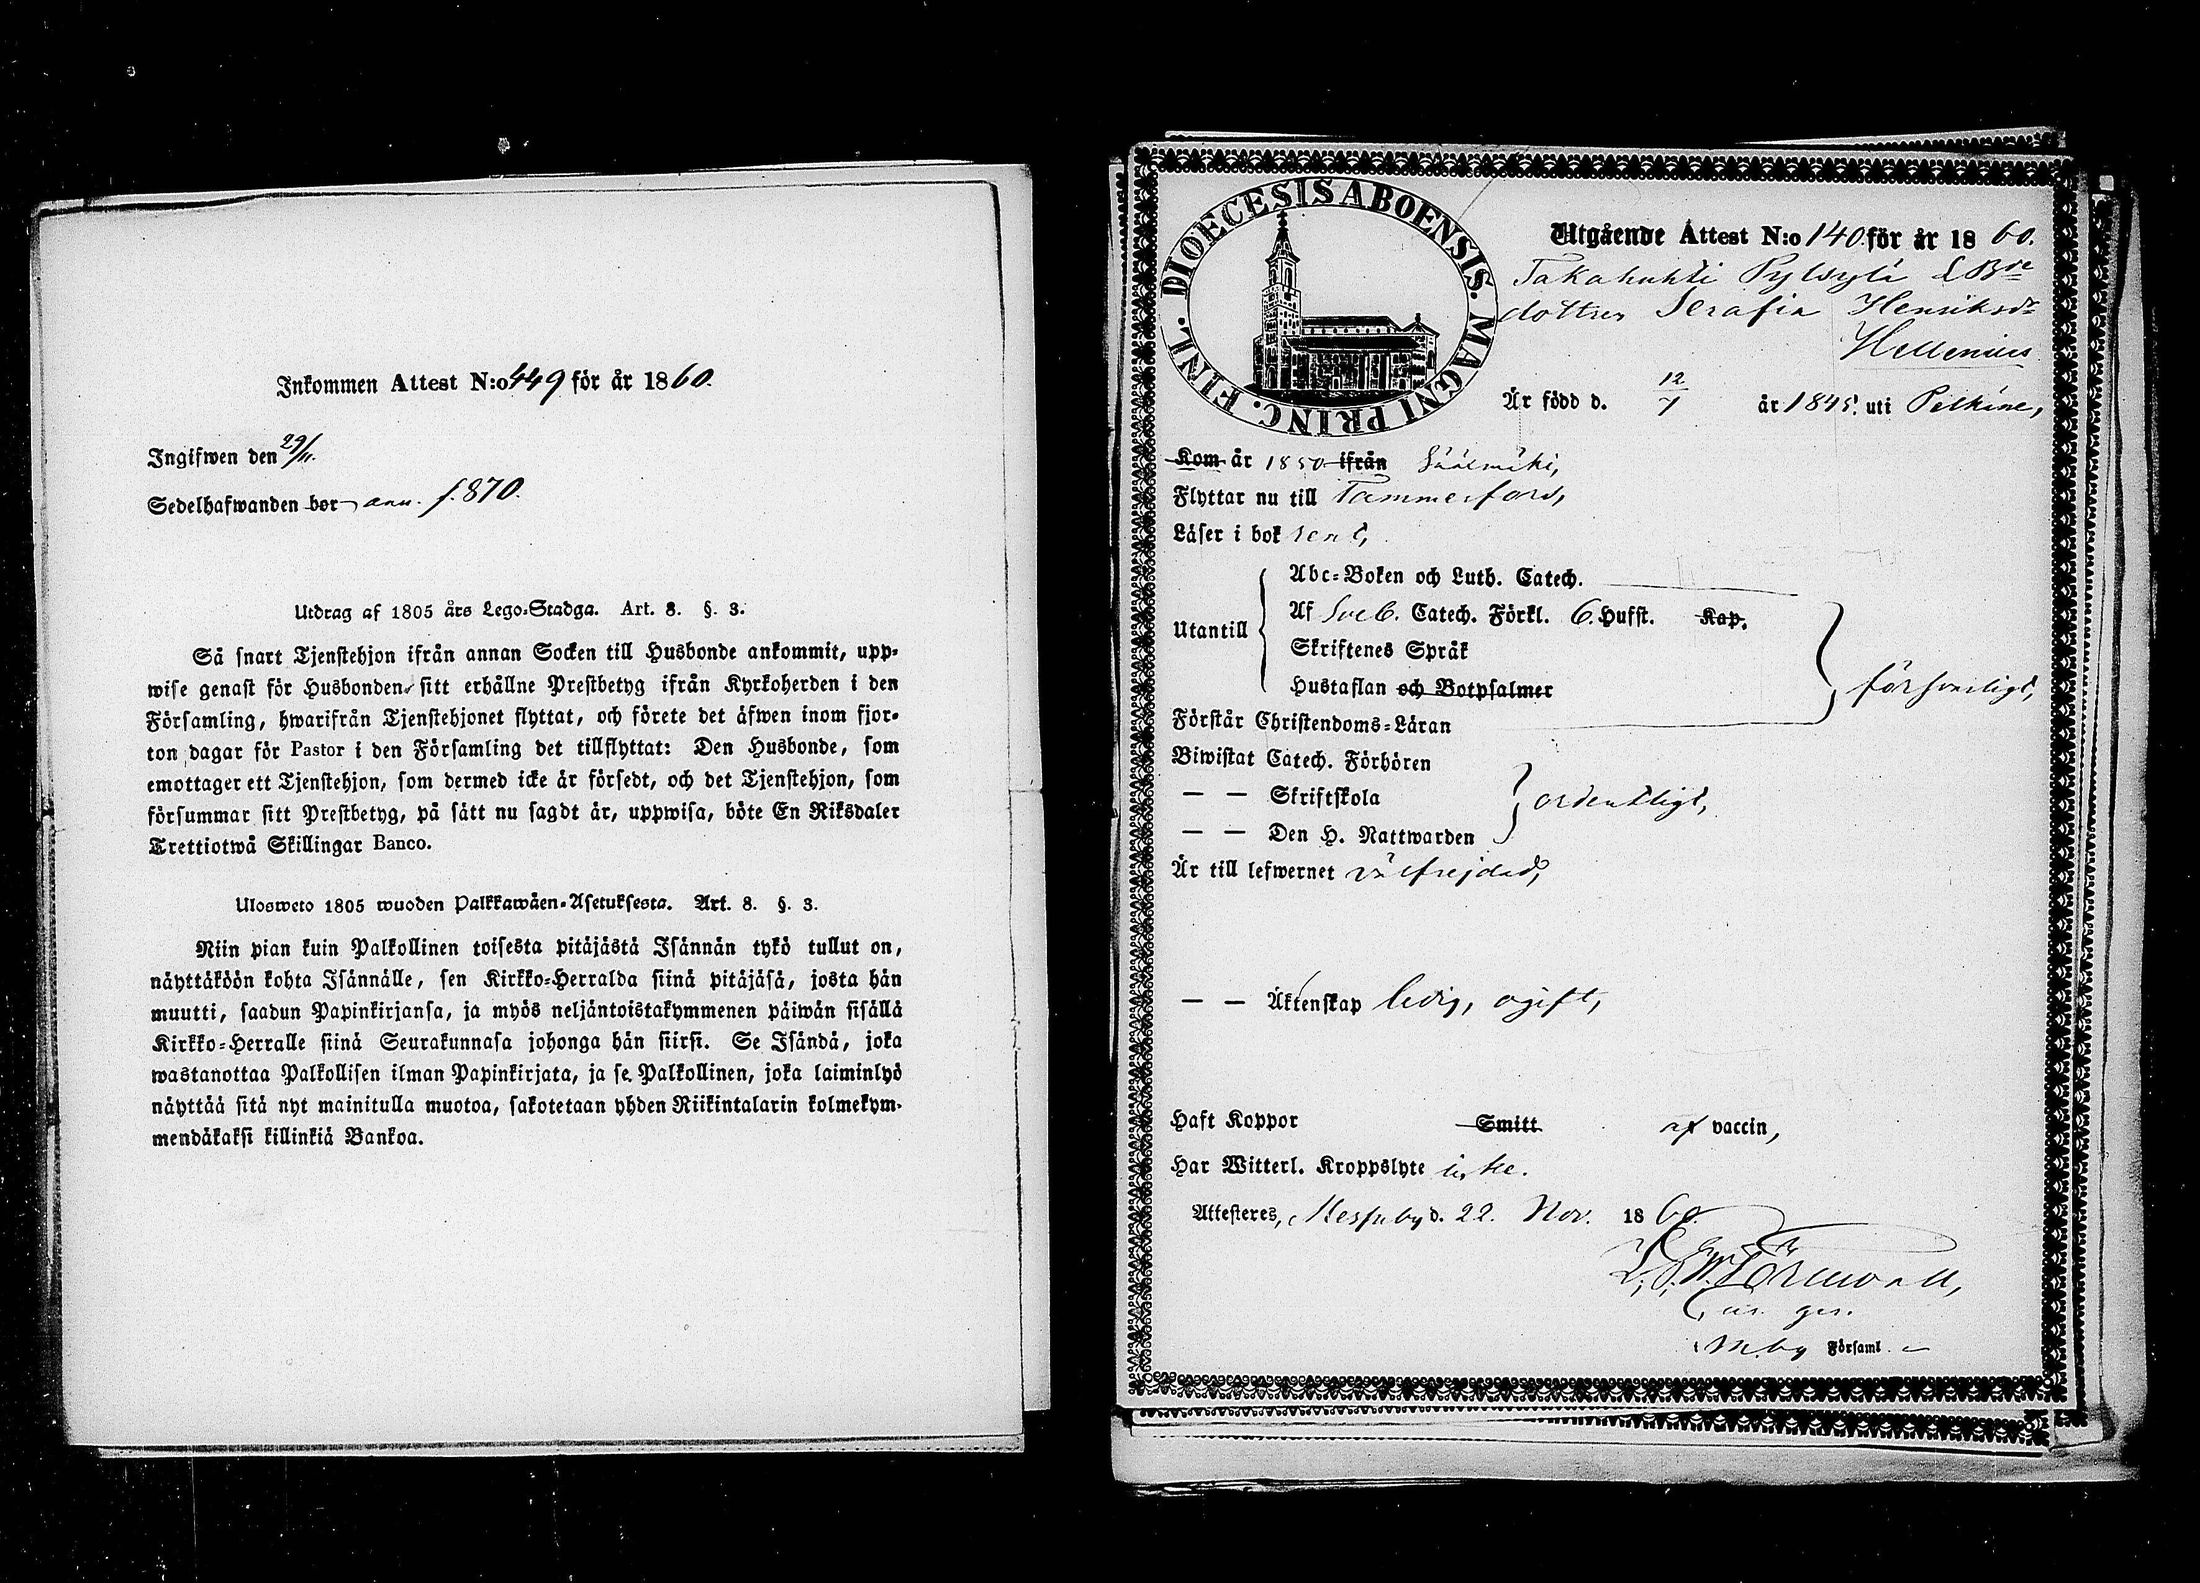 Inkommen Attest N:o 449 för år 1860.
Ingifwen den 29/11.
Sedelhafwanden bor ann. f. 870.
Utdrag af 1805 års Lego-Stadga. Art. 8. §. 3.
Så snart Tjenstehjon ifrån annan Socken till Husbonde ankommit, upp-
wise genast för Husbonden sitt erhållne Prestbetyg ifrån Kyrkoherden i den
Församling, hwarifrån Tjenstehjonet flyttat, och förete det äfwen inom fjor-
ton dagar för Pastor i den Församling det tillflyttat: Den Husbonde, som
emottager ett Tjenstehjon, som dermed icke är försedt, och det Tjenstehjon, som
försummar sitt Prestbetyg, på sätt nu sagdt är, uppwisa, böte En Riksdaler
Trettiotwå Skillingar Banco.
Ulosweto 1805 wuoden Palkkawäen-Asetuksesta. Art. 8. §. 3.
Niin pian kuin Palkollinen toisesta pitäjästä Isännän tykö tullut on,
näyttäköön kohta Isännälle, sen Kirkko-Herralda siinä pitäjäsä, josta hän
muutti, saadun Papinkirjansa, ja myös neljäntoistakymmenen päiwän sisällä
Kirkko-Herralle siinä Seurakunnasa johonga hän siirsi. Se Isändä, joka
wastanottaa Palkollisen ilman Papinkirjata, ja se Palkollinen, joka laiminlyö
näyttää sitä nyt mainitulla muotoa, sakotetaan yhden Riikintalarin kolmekym-
mendäkaksi killinkiä Bankoa.
DIOECESIS ABOENSIS. MAGNI PRINC. FINL.
Utgående Attest N:o 140 för år 1860.
Takahuhti Pylsyli
dottren Serafia Henriksdr
Hellenius
Är född d. 12/7 år 1845. uti Pelkäne,
Kom år 1850 ifrån Sääxmäki,
Flyttar nu till Tammerfors,
Läser i bok rent,
Abc-Boken och Luth. Catech.
Utantill
Af Sveb. Catech. Förkl. 6. Hufst. Kap.
Skriftenes Språk
Hustaflan och Botpsalmer
försvarligt,
Förstår Christendoms-Läran
Biwistat Catech. Förhören
— — Skriftskola
ordentligt,
— — Den H. Nattwarden
Är till lefwernet välfrejdad,
— — Äktenskap ledig, ogift,
Haft Koppor Smitt af vaccin,
Har Witterl. Kroppslyte icke.
Attesteres, Messuby d. 22. Nov. 1860.
Törnwall,
M.by Församl.